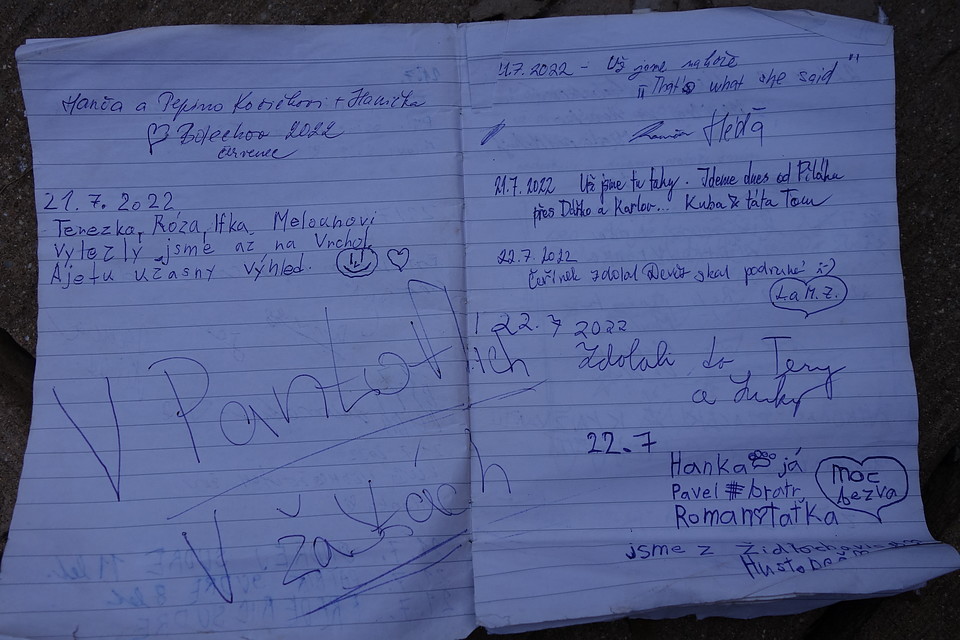 Hanča a Pepino Kosičkovi + Hanička
Bolechov 2022
červenec
21.7.2022
Terezka, Róza, Ifka, Melounovi
Vylezly jsme až na Vrchol
A je tu úžasný výhled.
V Pantoflích
V žabkách
4.7.2022 - Už jsme nahoře
"That's what she said"
Heďa
21.7.2022 Už jsme tu taky. Jdeme dnes od Piláku
přes Dářko a Karlov... Kuba & táta Tom
22.7.2022
zdolal Devět skal podruhé :-)
La M.Z.
22.7 2022
Zdolali to Tery
a Luky
22.7
Hanka já
Pavel bratr
Roman taťka
moc
bezva
jsme z